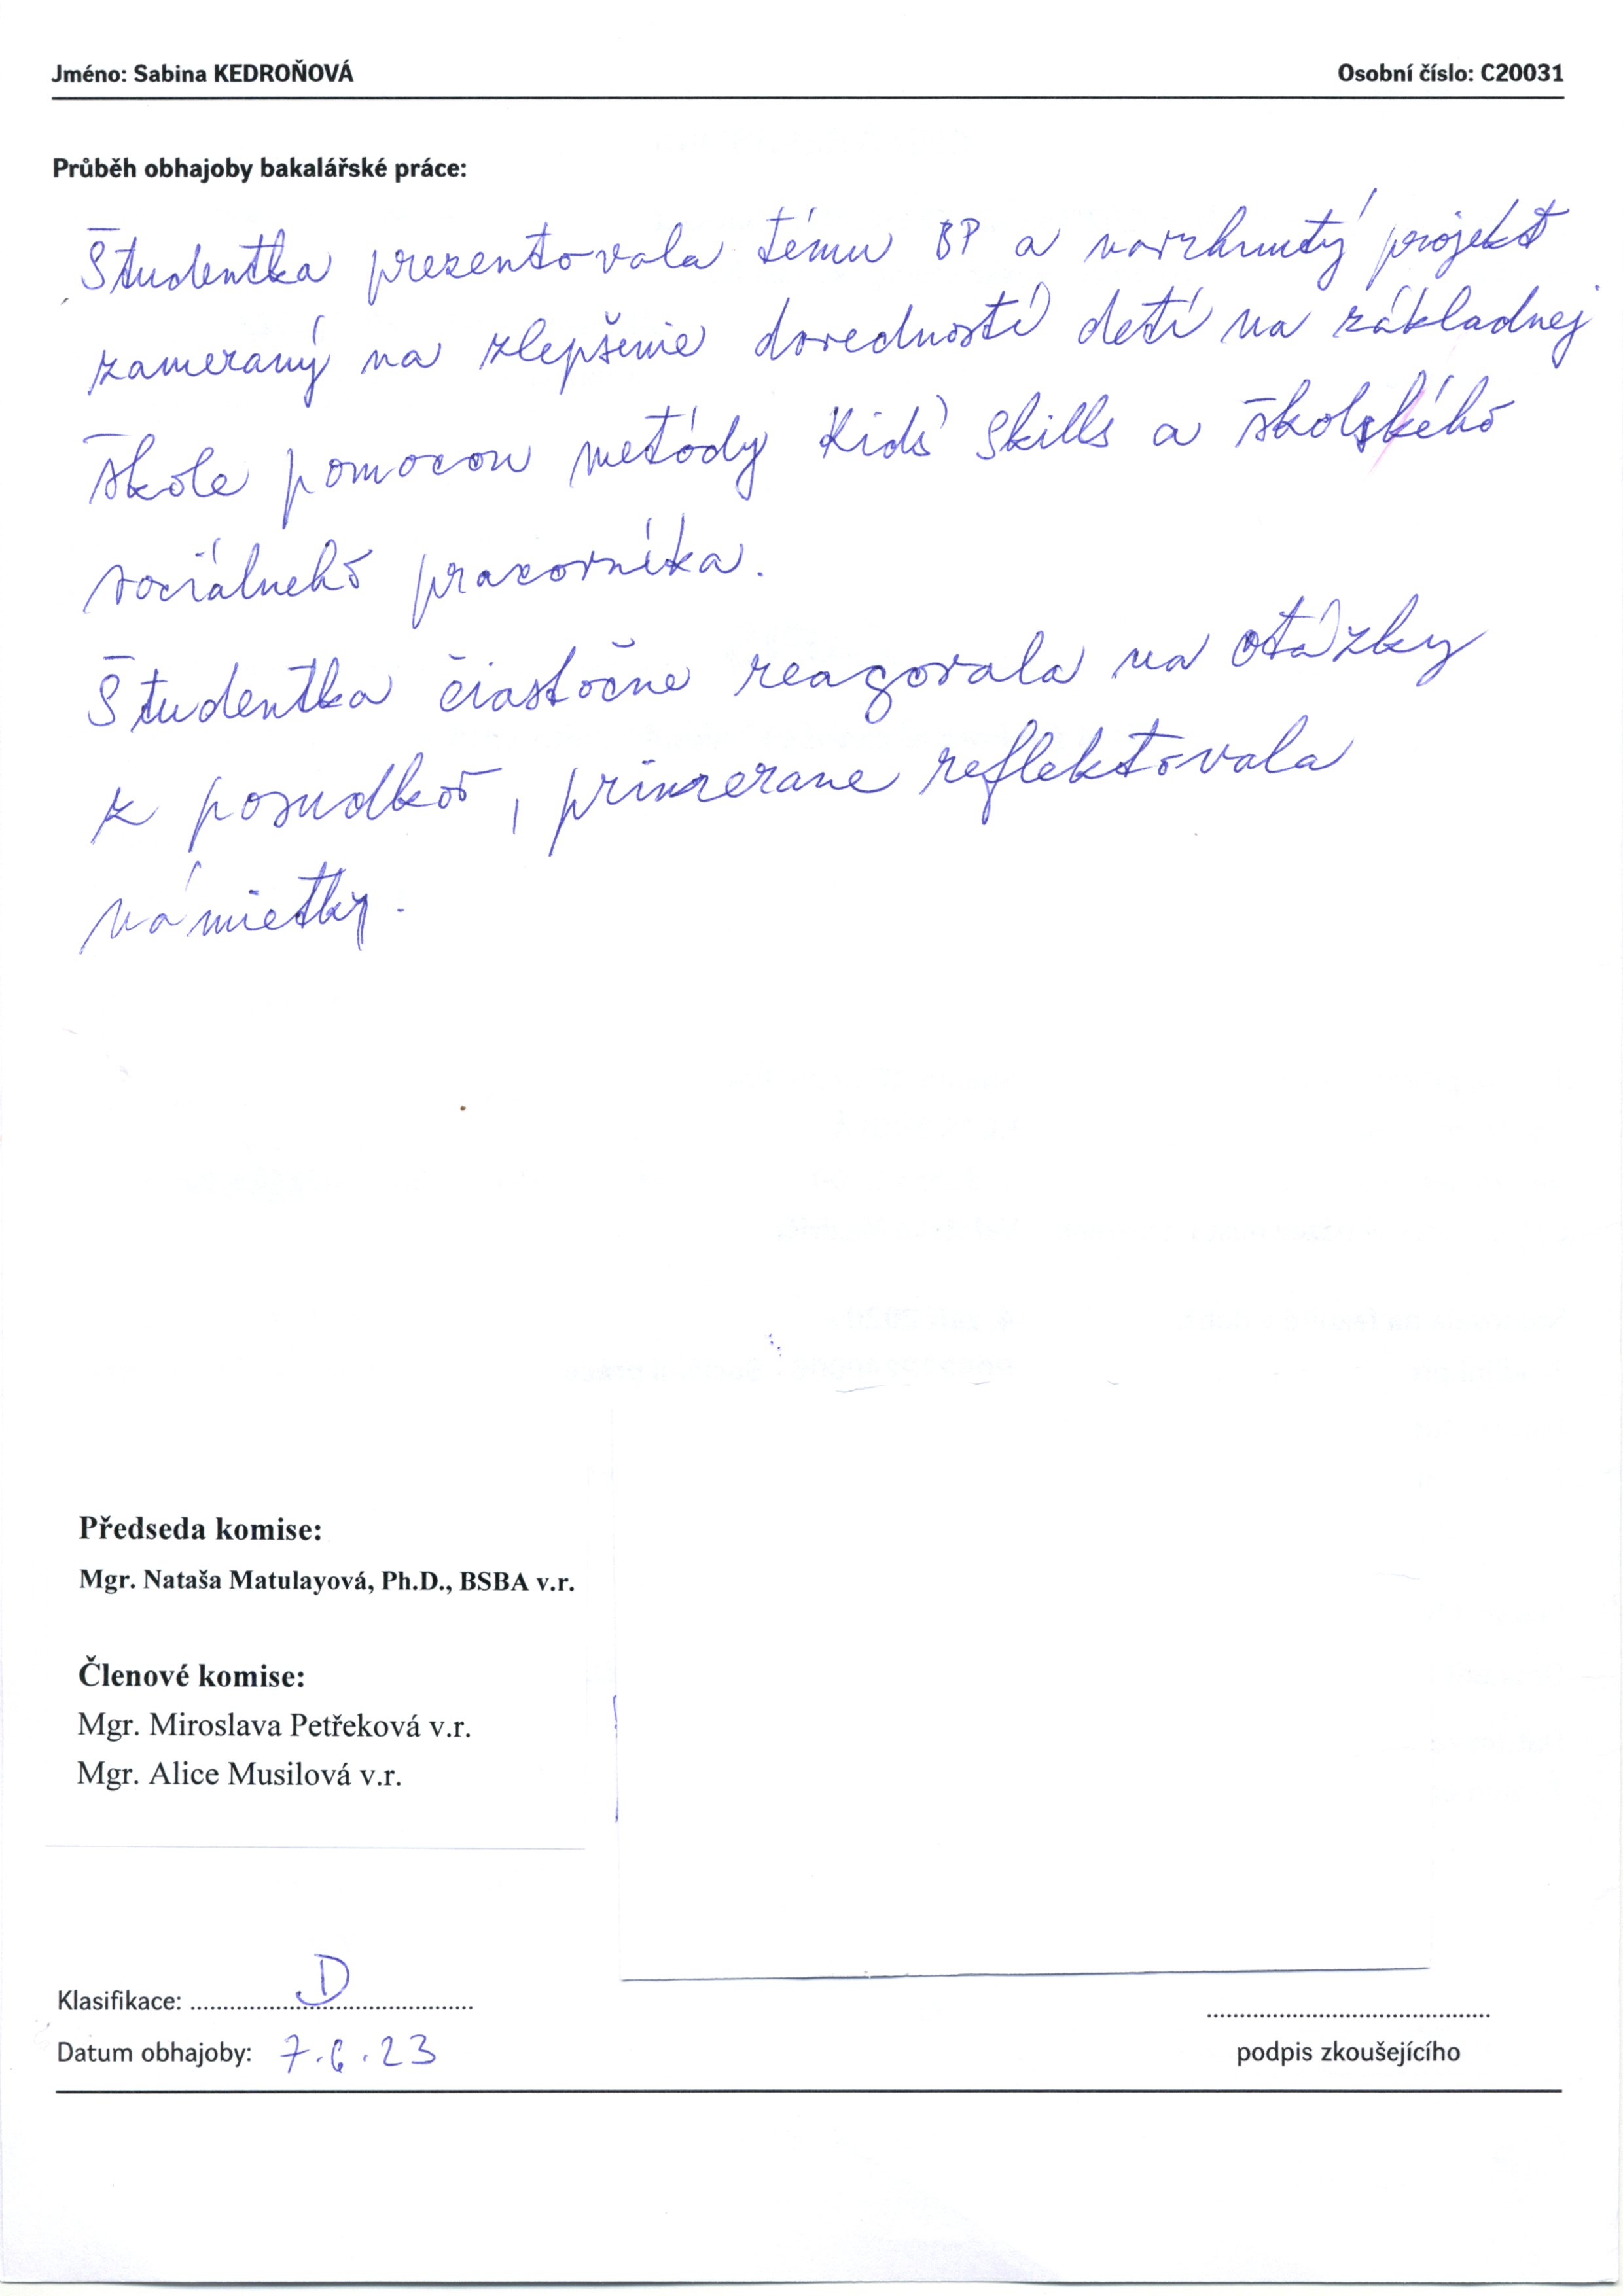 Jméno: Sabina KEDROŇOVÁ Osobní číslo: C20031
Průběh obhajoby bakalářské práce:
Študentka prezentovala tému BP a navrhnutý projekt
zameraný na zlepšenie dovedností detí na základnej
škole pomocou metódy Kids' Skills a školského
sociálneho pracovníka.
Študentka čiastočne reagovala na otázky
z posudkov, primerane reflektovala
námietky.
Předseda komise:
Mgr. Nataša Matulayová, Ph.D., BSBA v.r.
Členové komise:
Mgr. Miroslava Petřeková v.r.
Mgr. Alice Musilová v.r.
Klasifikace: D
Datum obhajoby: 7.6.23 podpis zkoušejícího